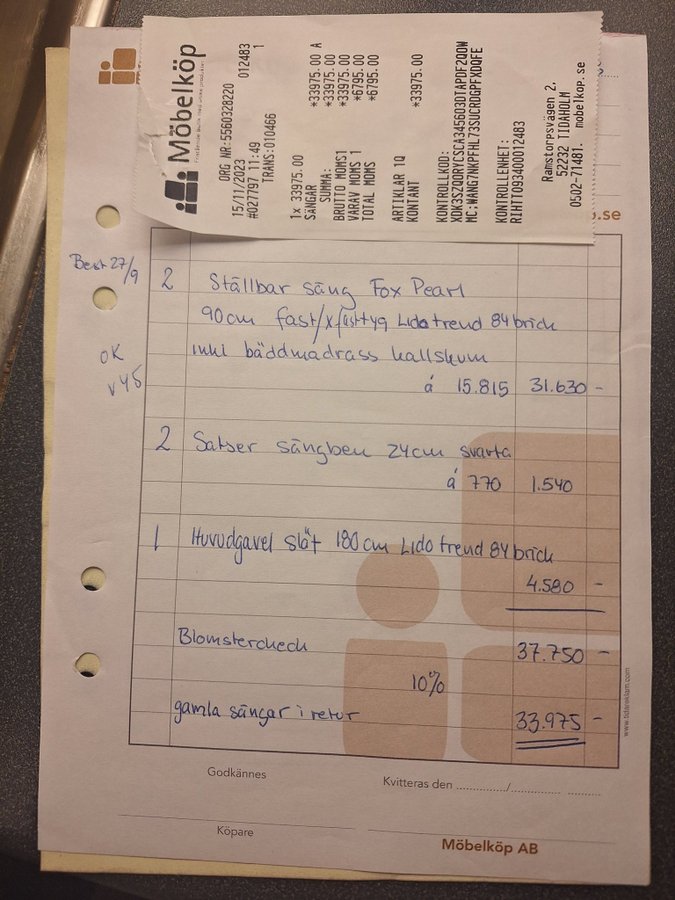 Möbelköp
ORG NR:5560328220
15/11/2023 11:49 012483
#027797 TRANS:010466 1
1x 33975.00
SÄNGAR *33975.00 A
SUMMA: *33975.00
BRUTTO MOMS1 *33975.00
VARAV MOMS 1 *6795.00
TOTAL MOMS *6795.00
ARTIKLAR 1Q
KONTANT *33975.00
KONTROLLKOD:
KONTROLLENHET:
RIHTT093400012483
Ramstorpsvägen 2,
52232 TIDAHOLM
0502-71481. mobelkop.se
.se
Best 27/9
2 Ställbar säng Fox Pearl
90cm fast/x fast tyg Lido trend 84 brick
inkl bäddmadrass kallskum
á 15.815 31.630 -
OK
v45
2 Satser sängben 24cm svarta
á 770 1.540
1 Huvudgavel slät 180cm Lido trend 84 brick
4.580 -
Blomstercheck 37.750 -
10%
gamla sängar i retur 33.975 -
www.tidareklam.com
Godkännes
Kvitteras den ............../..............
Köpare
Möbelköp AB